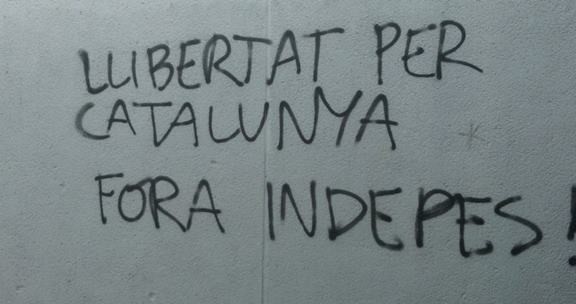 LLIBERTAT PER
CATALUNYA
FORA INDEPES!